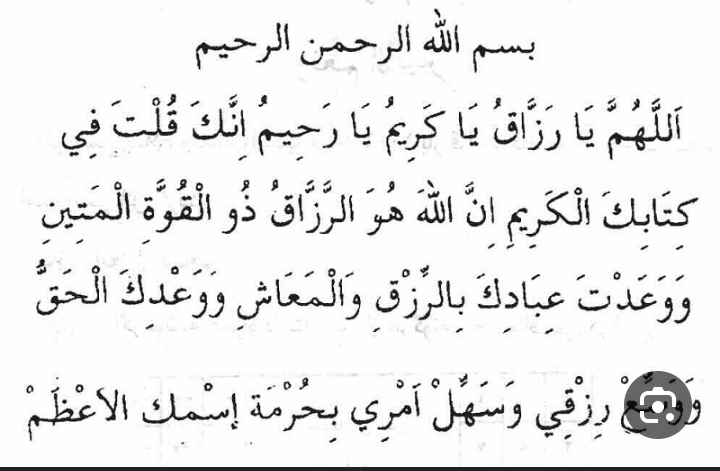 بسم الله الرحمن الرحيم
اَللَّهُمَّ يَا رَزَّاقُ يَا كَرِيمُ يَا رَحِيمُ اِنَّكَ قُلْتَ فِي
كِتَابِكَ الْكَرِيمِ اِنَّ اللهَ هُوَ الرَّزَّاقُ ذُو الْقُوَّةِ الْمَتِينِ
وَوَعَدْتَ عِبَادِكَ بِالرِّزْقِ وَالْمَعَاشِ وَوَعْدِكَ الْحَقُّ
رِزْقِي وَسَهِّلْ اَمْرِي بِحُرْمَة إسْمِك الاعْظَمْ